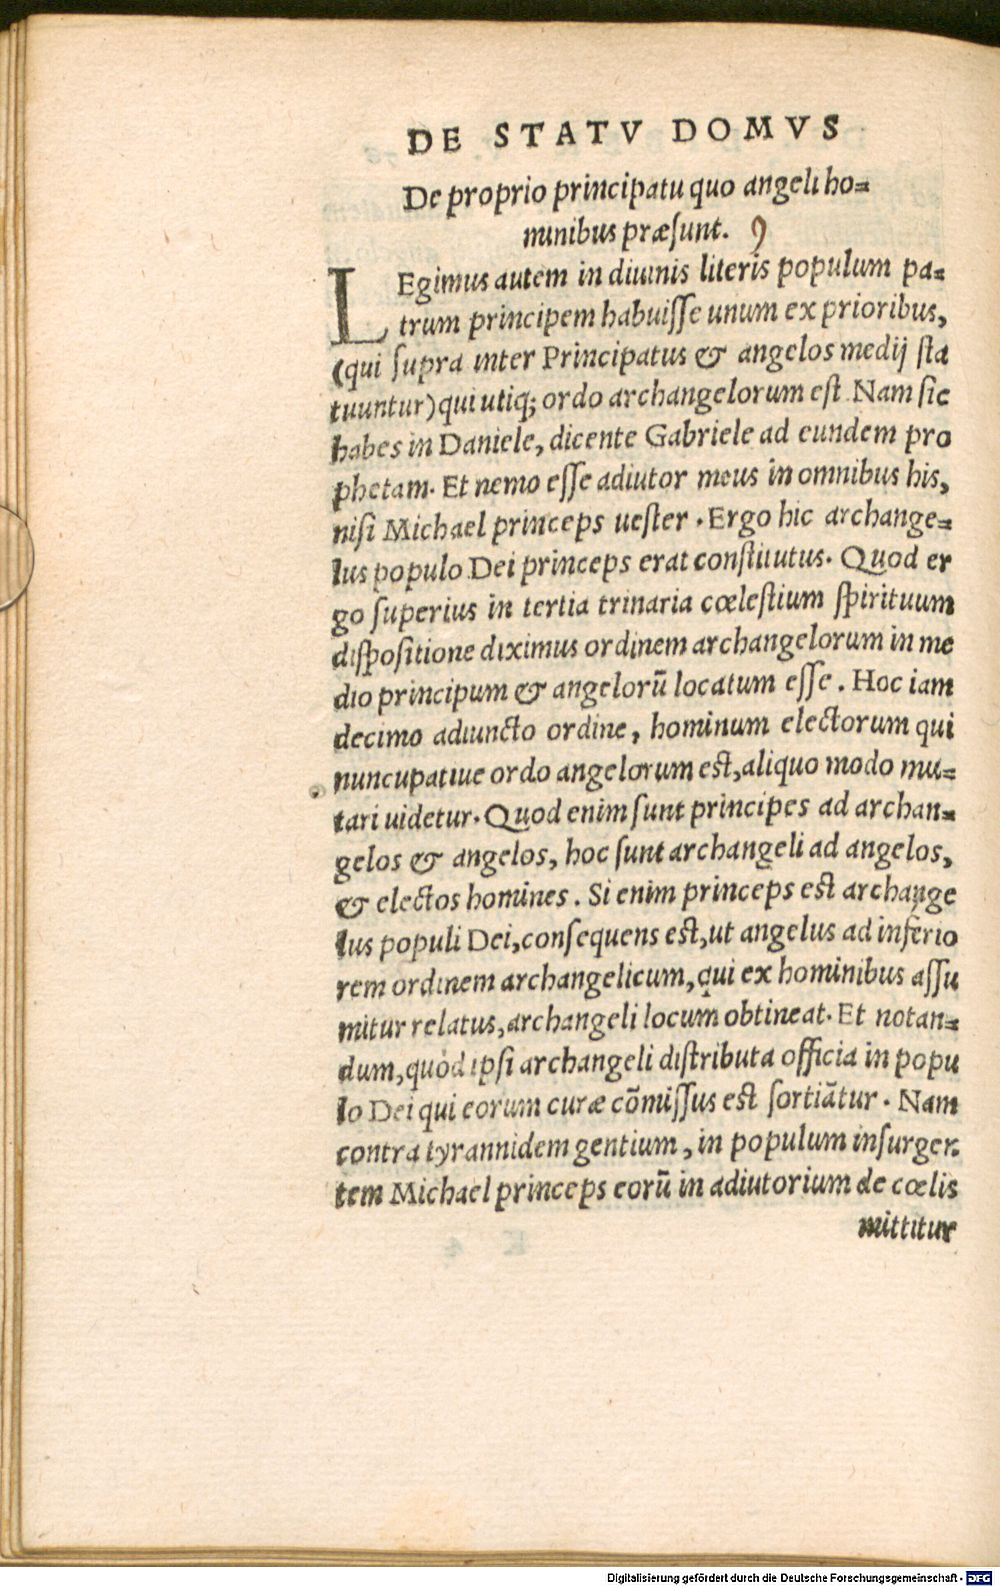 DE STATV DOMVS
De proprio principatu quo angeli ho=
minibus præsunt. 9
LEgimus autem in diuinis literis populum pa=
trum principem habuisse unum ex prioribus,
(qui supra inter Principatus & angelos medij sta
tuuntur) qui utiq; ordo archangelorum est Nam sic
habes in Daniele, dicente Gabriele ad eundem pro
phetam. Et nemo esse adiutor meus in omnibus his,
nisi Michael princeps uester. Ergo hic archange=
lus populo Dei princeps erat constitutus. Quod er
go superius in tertia trinaria cœlestium spirituum
dispositione diximus ordinem archangelorum in me
dio principum & angelorū locatum esse. Hoc iam
decimo adiuncto ordine, hominum electorum qui
nuncupatiue ordo angelorum est, aliquo modo mu=
tari uidetur. Quod enim sunt principes ad archan=
gelos & angelos, hoc sunt archangeli ad angelos,
& electos homines. Si enim princeps est archange
lus populi Dei, consequens est, ut angelus ad inferio
rem ordinem archangelicum, qui ex hominibus assu
mitur relatus, archangeli locum obtineat. Et notan=
dum, quòd ipsi archangeli distributa officia in popu
lo Dei qui eorum curæ cōmissus est sortiātur. Nam
contra tyrannidem gentium, in populum insurgen
tem Michael princeps eorū in adiutorium de cœlis
mittitur
Digitalisierung gefördert durch die Deutsche Forschungsgemeinschaft - DFG